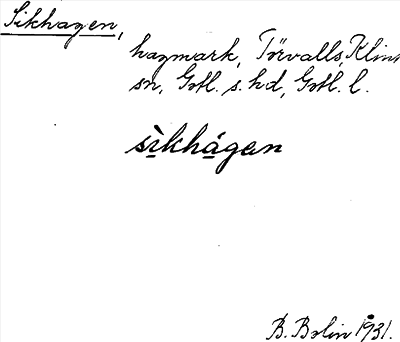 Sikhagen,
hagmark, Törvalls, Klint
sn, Gotl. s. hd, Gotl. l.
sìkhágen
B. Bolin 1931.